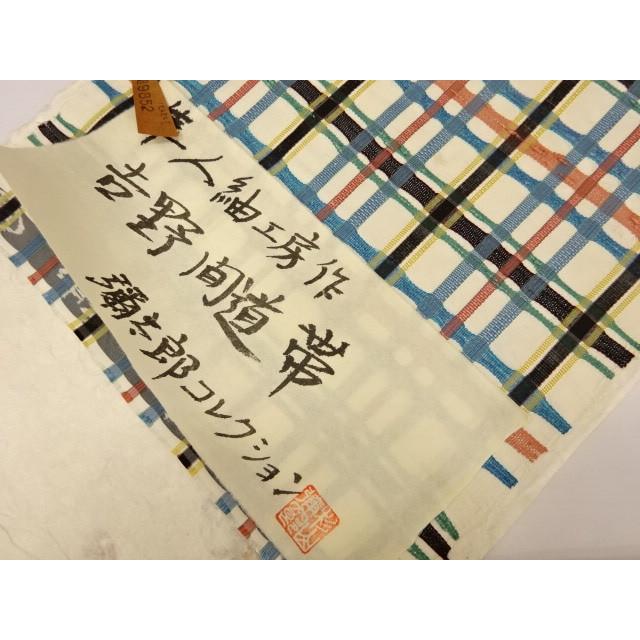 人紬工房作
吉野間道帯
彌太郎コレクション
9852